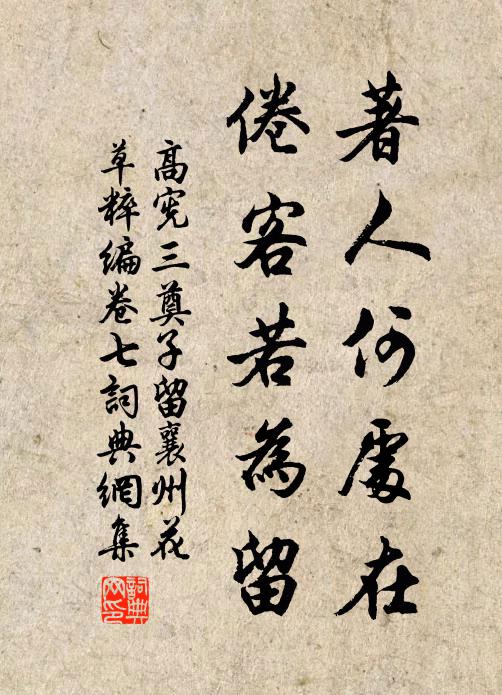 著人何處在
倦客若為留
高宪三奠子留襄州花
草粹編卷七詞典網集
詞典
网印